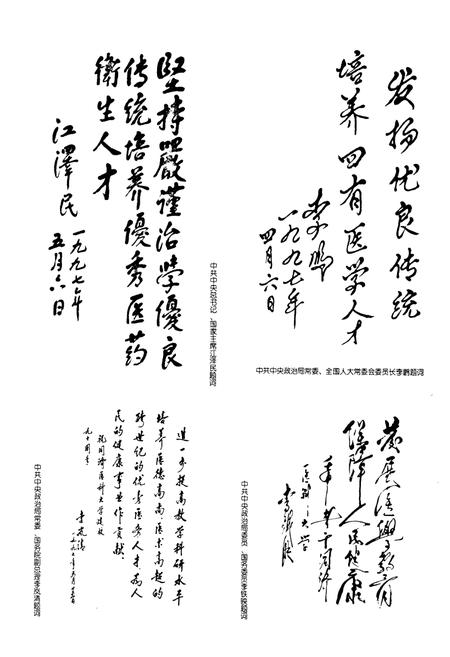 堅持嚴謹治學優良
传统培养優秀医药
衛生人才
江澤民
一九九七年
五月六日
中共中央总书记、国家主席江泽民题词
发扬优良传统
培养四有医学人才
李鹏
一九九七年
四月六日
中共中央政治局常委、全国人大常委会委员长李鹏题词
進一步提高教学科研水平
培养医德高尚、医术高超的
跨世纪的优秀医务人才为人
民的健康事业作贡献
祝同济医科大学建校
九十周年
李岚清
中共中央政治局常委、国务院副总理李岚清题词
發展医学教育
保障人民健康
医科大学
李铁映
中共中央政治局委员、国务委员李铁映题词